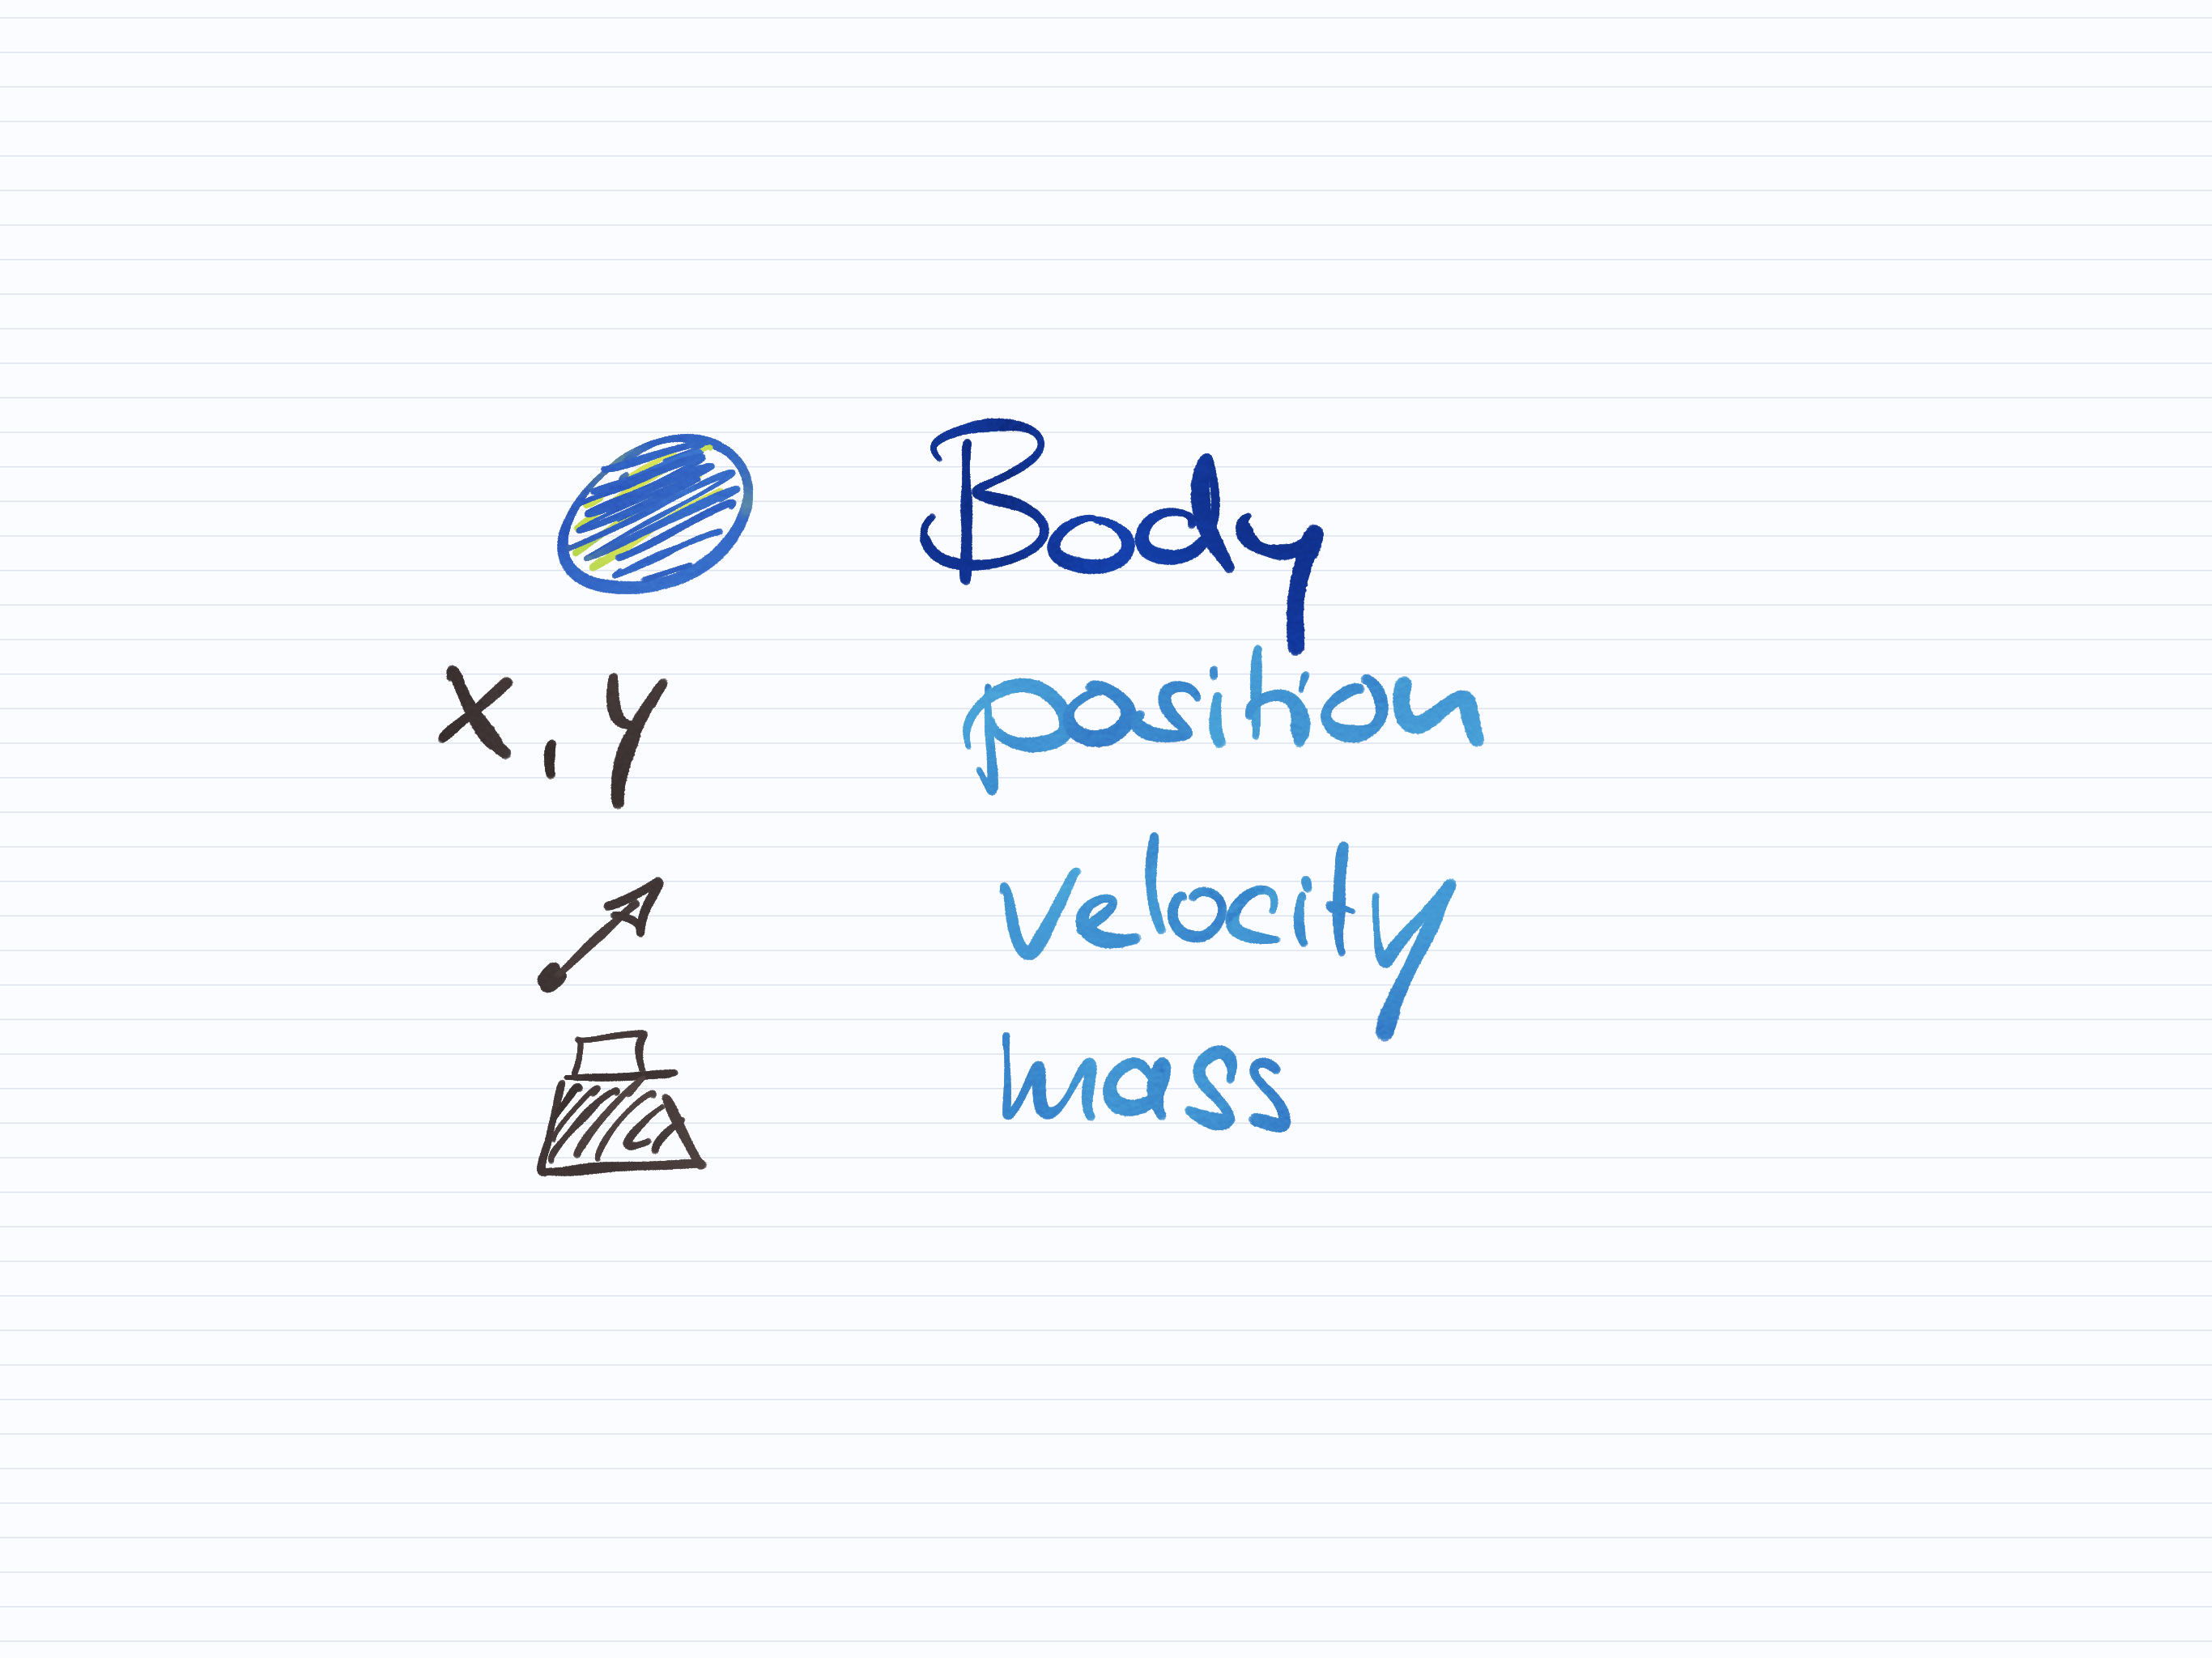 Body
x, y position
velocity
mass